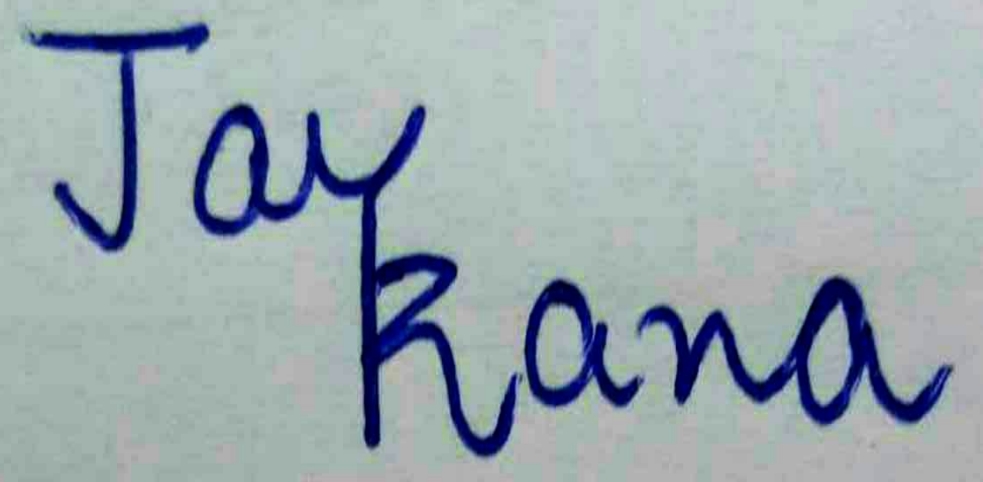 Jay
Rana